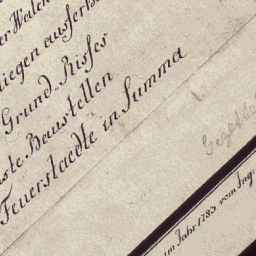 er Walen
liegen ausserh
Grund-Risses
ste Baustellen
Feuerstaedte in Summa
im Jahr 1783 vom Ing